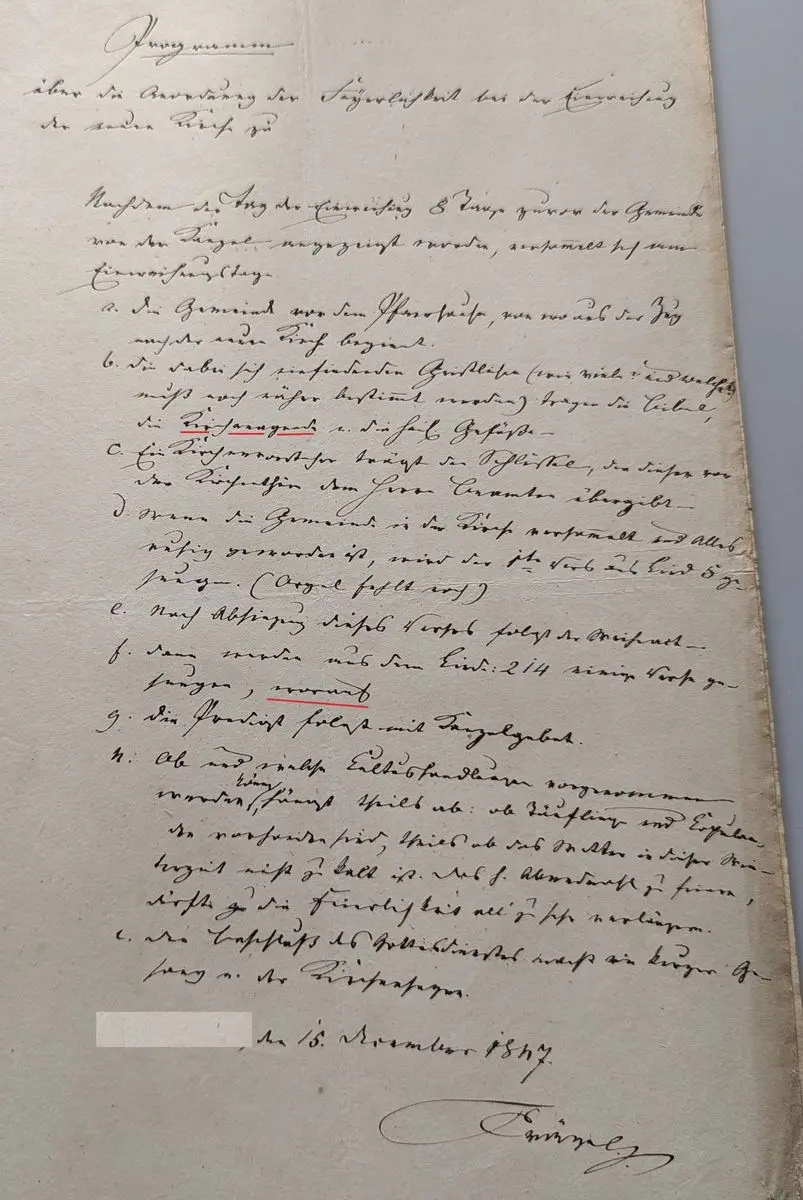 Programm
über die Anordnung der Feyerlichkeit bei der Einweihung
der neuen Kirche zu
Nachdem der Tag der Einweihung 8 Tage zuvor der Gemeinde
von der Kanzel angezeigt worden, versammelt sich am
Einweihungstage
a. die Gemeinde vor dem Pfarrhause, von wo aus der Zug
nach der neuen Kirch beginnt.
b. die dabei sich einfindenden Geistlichen (wie viele? und welche?
muß noch näher bestimmt werden) tragen die Bibel,
die Kirchenagende u. die heil. Gefäße –
c. Ein Kirchenvorsteher trägt den Schlüssel, den dieser vor
der Kirchenthür dem Herrn Beamten übergibt –
d. Wenn die Gemeinde in der Kirche versammelt und Alles
ruhig geworden ist, wird der 1te Vers aus Lied 5 ge-
sungen. (Orgel fehlt noch)
e. Nach Absingung dieses Verses folgt der Weiheact –
f. dann werden aus dem Lied: 214 einige Verse ge-
sungen, worauf
g. die Predigt folgt mit Kanzelgebet.
h. Ob und welche Cultushandlungen vorgenommen
werden könn, hängt theils ab: ob Täuflinge und Copulan-
den vorhanden sind, theils ob das Wetter in dieser Win-
terzeit nicht zu kalt ist. Das h. Abendmahl zu feiern,
dürfte die Feierlichkeit all zu sehr verlängern.
i. den Beschluß des Gottesdienstes macht ein kurzer Ge-
sang u. der Kirchensegen.
, den 15. December 1847.